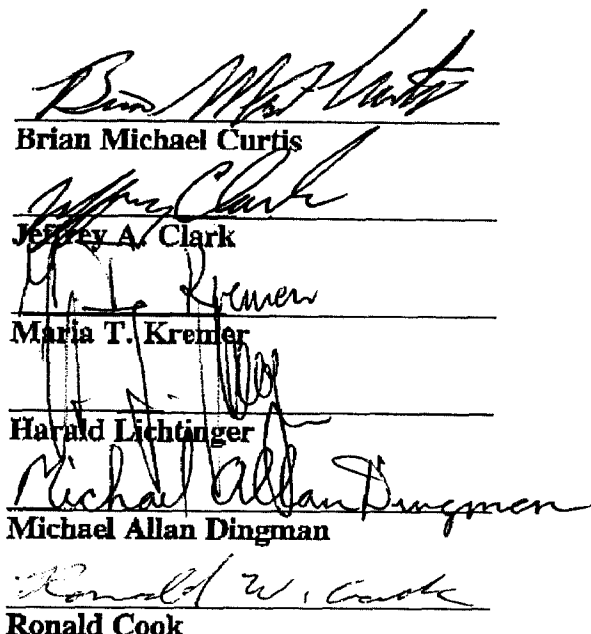 Brian Michael Curtis
Jeffrey Clark
Jeffrey A. Clark
Kremer
Maria T. Kremer
Harald Lichtinger
Michael Allan Dingman
Michael Allan Dingman
Ronald W. Cook
Ronald Cook